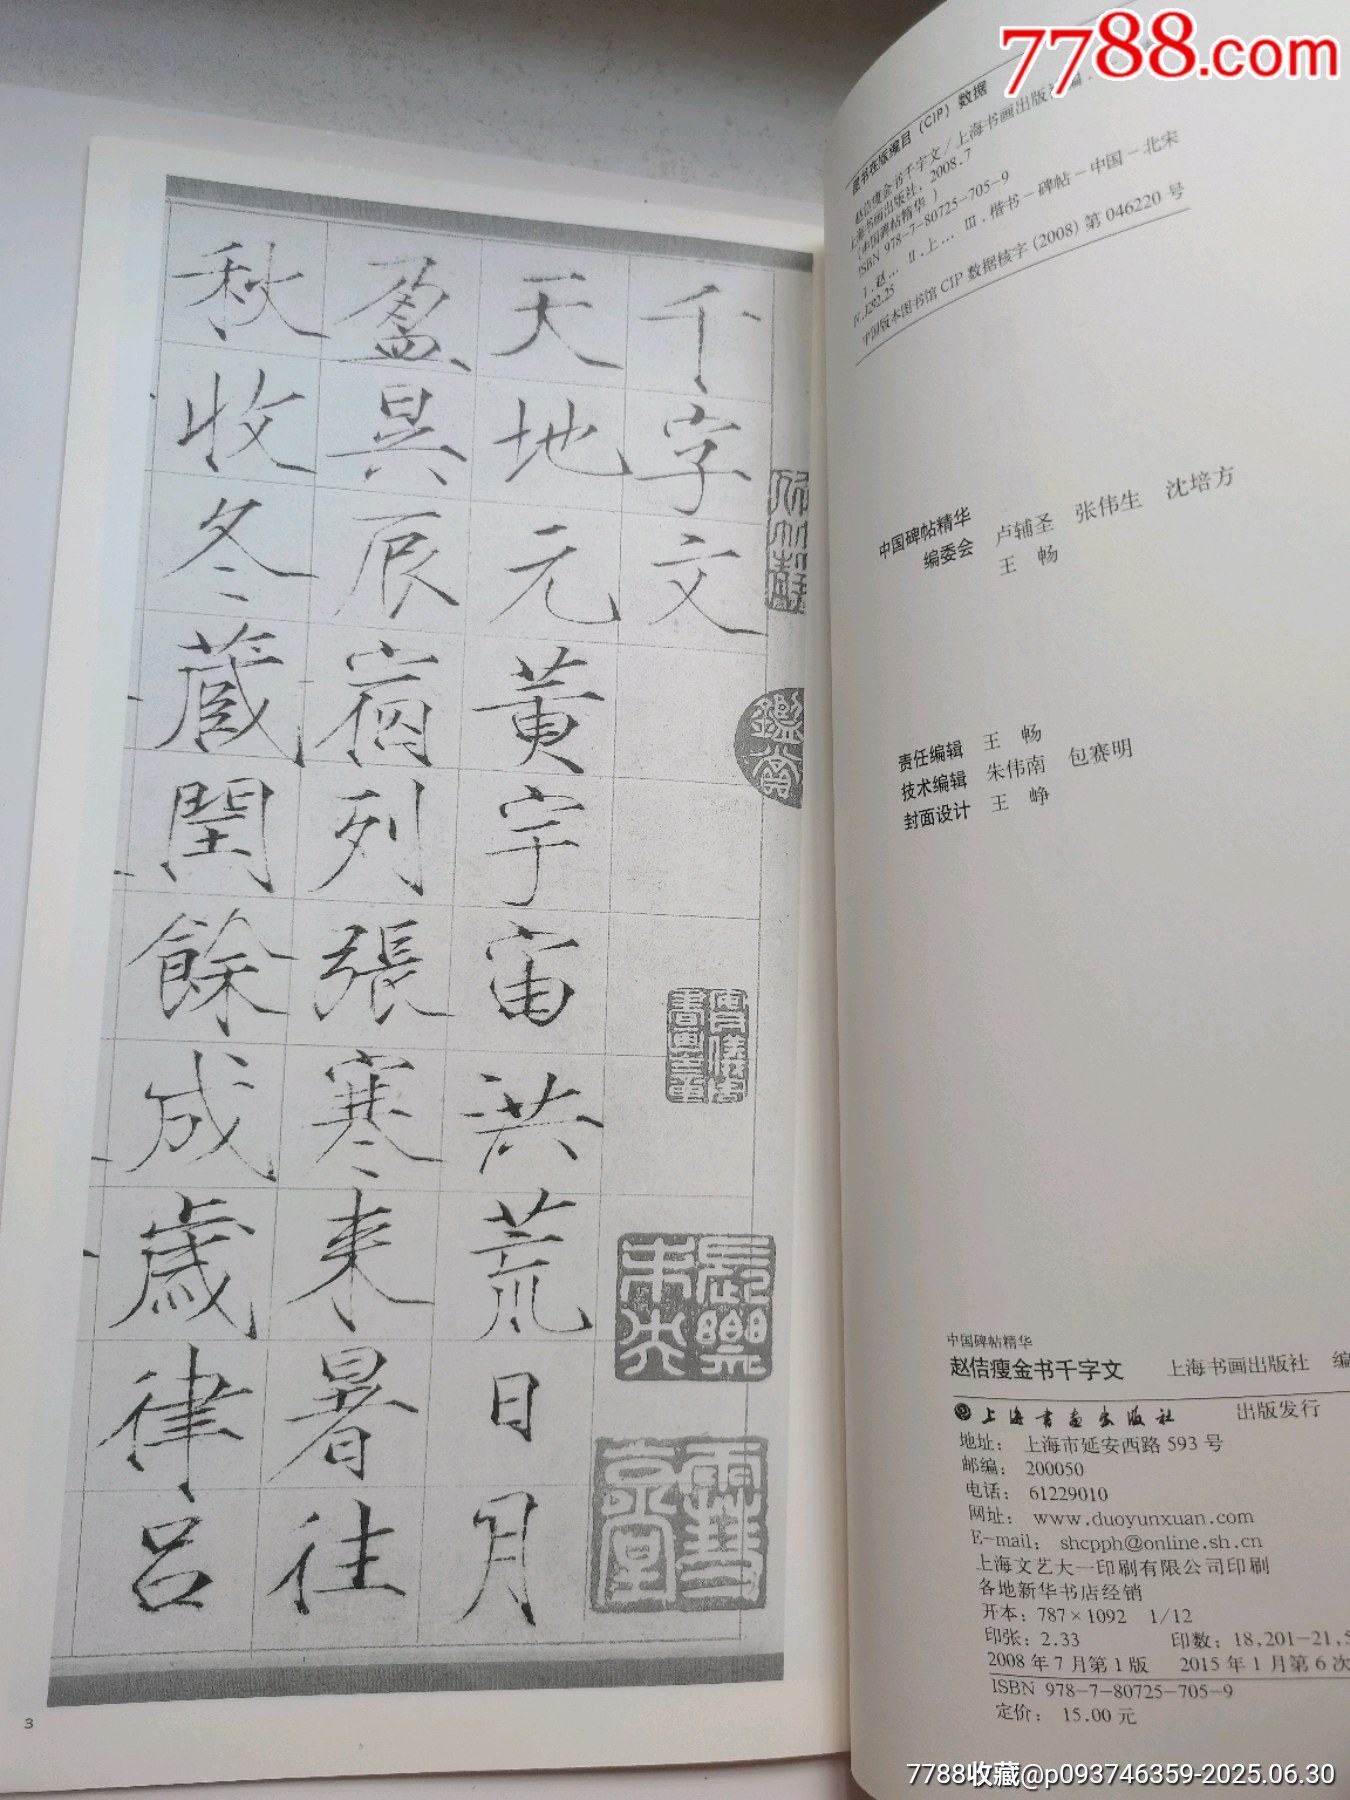 千字文
天地元黄宇宙洪荒日月
盈昃辰宿列張寒来暑往
秋收冬藏閏餘成歲律呂
鑑賞
3
7788.com
图书在版编目（CIP）数据
赵佶瘦金书千字文/上海书画出版社编．
上海书画出版社，2008.7
（中国碑帖精华）
ISBN 978-7-80725-705-9
Ⅰ.赵… Ⅱ.上… Ⅲ.楷书－碑帖－中国－北宋
Ⅳ.J292.25
中国版本图书馆CIP数据核字（2008）第046220号
中国碑帖精华
编委会 卢辅圣 张伟生 沈培方
王 畅
责任编辑 王 畅
技术编辑 朱伟南 包赛明
封面设计 王 峥
中国碑帖精华
赵佶瘦金书千字文 上海书画出版社 编
上海书画出版社 出版发行
地址： 上海市延安西路593号
邮编： 200050
电话： 61229010
网址： www.duoyunxuan.com
E-mail： shcpph@online.sh.cn
上海文艺大一印刷有限公司印刷
各地新华书店经销
开本：787×1092 1/12
印张：2.33 印数：18,201-21,5
2008年7月第1版 2015年1月第6次
ISBN 978-7-80725-705-9
定价： 15.00元
7788收藏@p093746359-2025.06.30